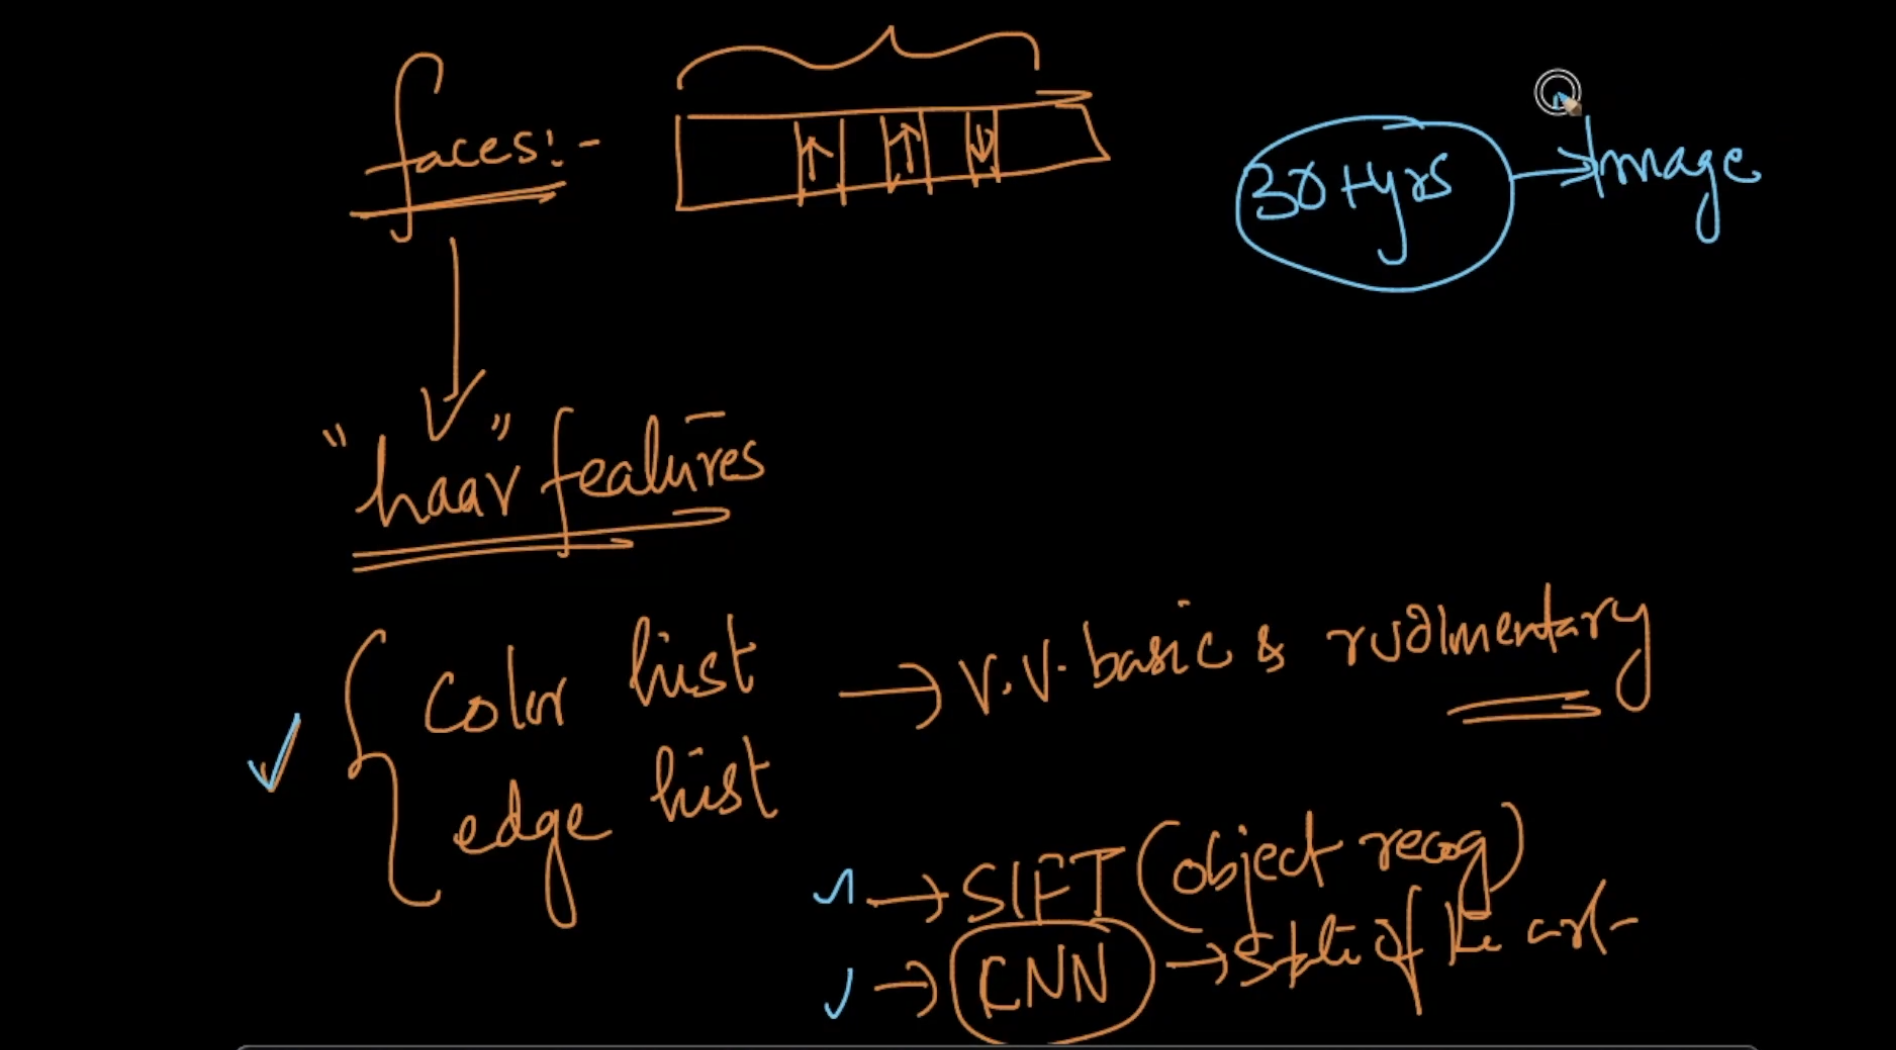 faces:-
30+yrs → Image
"haar" features
Color hist → V.V. basic & rudimentary
edge hist
→ SIFT (object recog)
→ CNN → State of the art